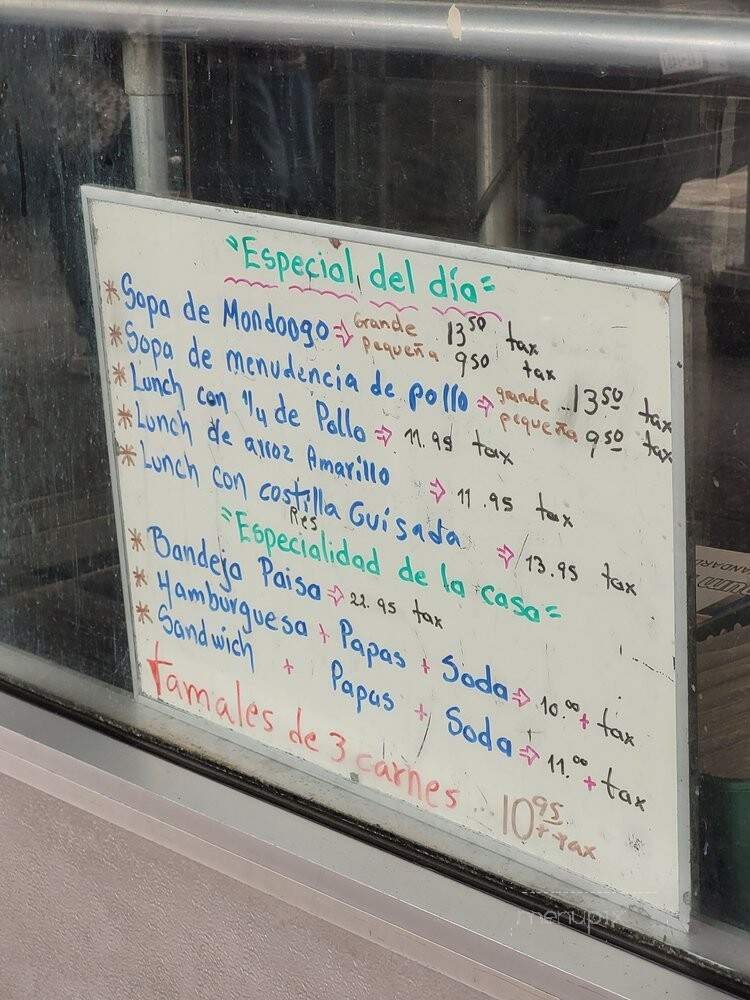 "Especial del día"
* Sopa de Mondongo ⇨ Grande 13 50 tax
pequeña 9 50 tax
* Sopa de menudencia de pollo ⇨ grande .. 13 50 tax
pequeña 9 50 tax
* Lunch con 1/4 de Pollo ⇨ 11.99 tax
* Lunch de arroz Amarillo ⇨ 11.95 tax
* Lunch con costilla Guisada ⇨ 13.95 tax
Res
"Especialidad de la casa"
* Bandeja Paisa ⇨ 22.95 tax
* Hamburguesa + Papas + Soda ⇨ 10.00 + tax
* Sandwich + Papas + Soda ⇨ 11.00 + tax
tamales de 3 carnes ... 10 95 + tax
menupix